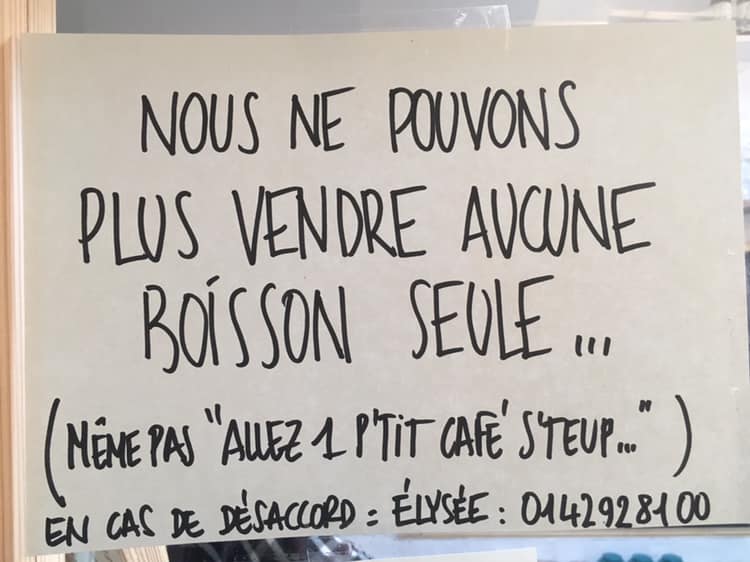 NOUS NE POUVONS
PLUS VENDRE AUCUNE
BOISSON SEULE...
(MÊME PAS "ALLEZ 1 P'TIT CAFÉ S'TEUP...")
EN CAS DE DÉSACCORD = ÉLYSÉE : 0142928100